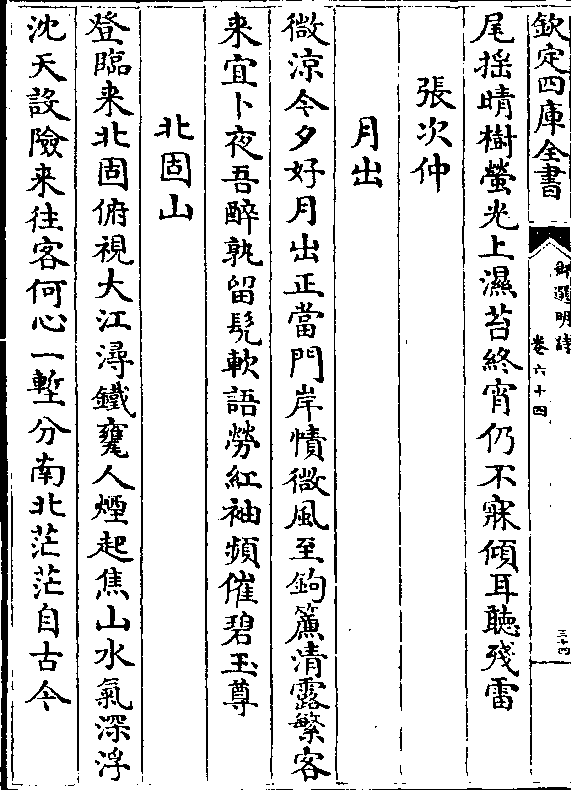 欽定四庫全書
御選明詩
卷六十四
三十四
尾揺晴樹螢光上濕苔終宵仍不寐傾耳聽殘雷
張次仲
月出
微涼今夕好月出正當門岸幘微風至鉤簾清露繁客
来宜卜夜吾醉孰留髡軟語勞紅袖頻催碧玉尊
北固山
登臨来北固俯視大江潯鐵甕人煙起焦山水氣深浮
沈天設險来往客何心一塹分南北茫茫自古今